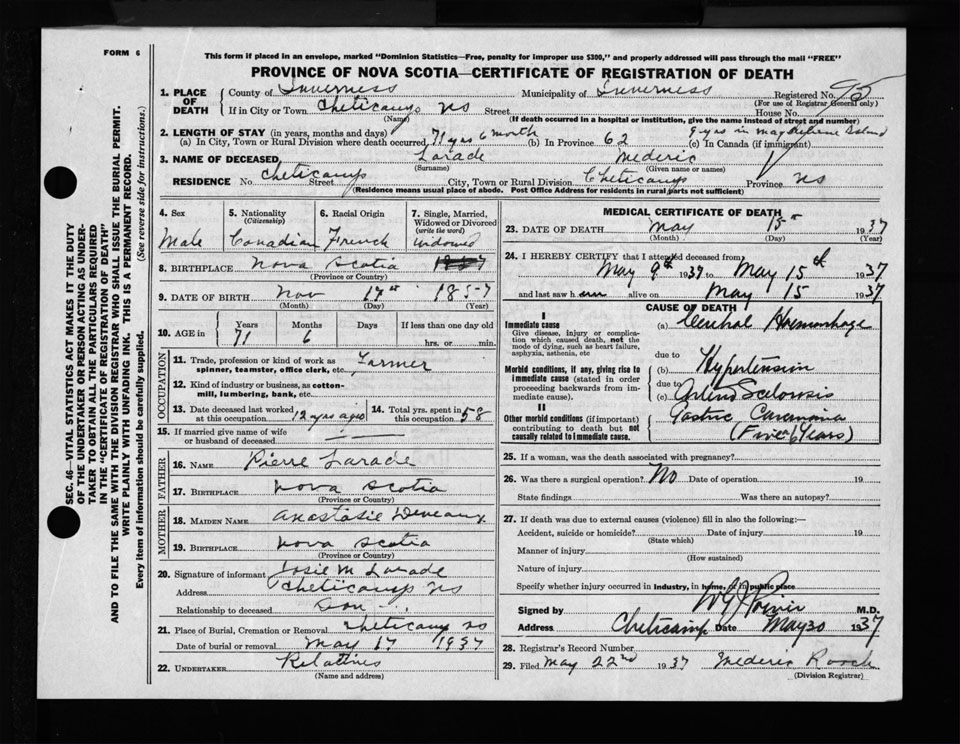 FORM 6
This form if placed in an envelope, marked "Dominion Statistics—Free, penalty for improper use $300," and properly addressed will pass through the mail "FREE"
PROVINCE OF NOVA SCOTIA—CERTIFICATE OF REGISTRATION OF DEATH
SEC. 46—VITAL STATISTICS ACT MAKES IT THE DUTY
OF THE UNDERTAKER OR PERSON ACTING AS UNDER-
TAKER TO OBTAIN ALL THE PARTICULARS REQUIRED
IN THE "CERTIFICATE OF REGISTRATION OF DEATH"
AND TO FILE THE SAME WITH THE DIVISION REGISTRAR WHO SHALL ISSUE THE BURIAL PERMIT.
WRITE PLAINLY WITH UNFADING INK. THIS IS A PERMANENT RECORD.
Every item of information should be carefully supplied. (See reverse side for instructions.)
1. PLACE OF DEATH County of Inverness Municipality of Inverness Registered No. 95
(For use of Registrar General only)
If in City or Town Cheticamp NS Street House No.
(Name) (If death occurred in a hospital or institution, give the name instead of street and number)
2. LENGTH OF STAY (in years, months and days)
(a) In City, Town or Rural Division where death occurred 71 yrs 6 month (b) In Province 62 (c) In Canada (if immigrant) 9 yrs in Magdelene Island
3. NAME OF DECEASED Larade Mederic
(Surname) (Given name or names)
RESIDENCE No. Cheticamp Street City, Town or Rural Division Cheticamp Province NS
(Residence means usual place of abode. Post Office Address for residents in rural parts not sufficient)
4. Sex Male
5. Nationality (Citizenship) Canadian
6. Racial Origin French
7. Single, Married, Widowed or Divorced (write the word) Widowed
8. BIRTHPLACE Nova Scotia
(Province or Country)
9. DATE OF BIRTH Nov 17th 1857
(Month) (Day) (Year)
10. AGE in Years 71 Months 6 Days If less than one day old hrs. or min.
OCCUPATION
11. Trade, profession or kind of work as spinner, teamster, office clerk, etc. Farmer
12. Kind of industry or business, as cotton-mill, lumbering, bank, etc.
13. Date deceased last worked at this occupation 12 yrs ago
14. Total yrs. spent in this occupation 58
15. If married give name of wife or husband of deceased
FATHER
16. NAME Pierre Larade
17. BIRTHPLACE Nova Scotia
(Province or Country)
MOTHER
18. MAIDEN NAME Anastasie Deveaux
19. BIRTHPLACE Nova Scotia
(Province or Country)
20. Signature of informant Josie M Larade
Address Cheticamp NS
Relationship to deceased Son
21. Place of Burial, Cremation or Removal Cheticamp NS
Date of burial or removal May 17 1937
22. UNDERTAKER Relatives
(Name and address)
MEDICAL CERTIFICATE OF DEATH
23. DATE OF DEATH May 15th 1937
(Month) (Day) (Year)
24. I HEREBY CERTIFY that I attended deceased from
May 9th 1937 to May 15th 1937
and last saw h alive on May 15 1937
CAUSE OF DEATH
I
Immediate cause
Give disease, injury or complication which caused death, not the mode of dying, such as heart failure, asphyxia, asthenia, etc
(a) Cerebral Haemorrhage
due to
Morbid conditions, if any, giving rise to immediate cause (stated in order proceeding backwards from immediate cause).
(b) Hypertension
due to
(c) Arterio Sclerosis
II
Other morbid conditions (if important) contributing to death but not causally related to immediate cause.
Gastric Carcinoma
(Five Years)
25. If a woman, was the death associated with pregnancy?
26. Was there a surgical operation? No Date of operation 19
State findings Was there an autopsy?
27. If death was due to external causes (violence) fill in also the following:—
Accident, suicide or homicide? Date of injury 19
(State which)
Manner of injury
(How sustained)
Nature of injury
Specify whether injury occurred in industry, in home, or in public place
Signed by M.D.
Address Cheticamp Date May 20 1937
28. Registrar's Record Number
29. Filed May 22nd 1937 Mederic Roach
(Division Registrar)